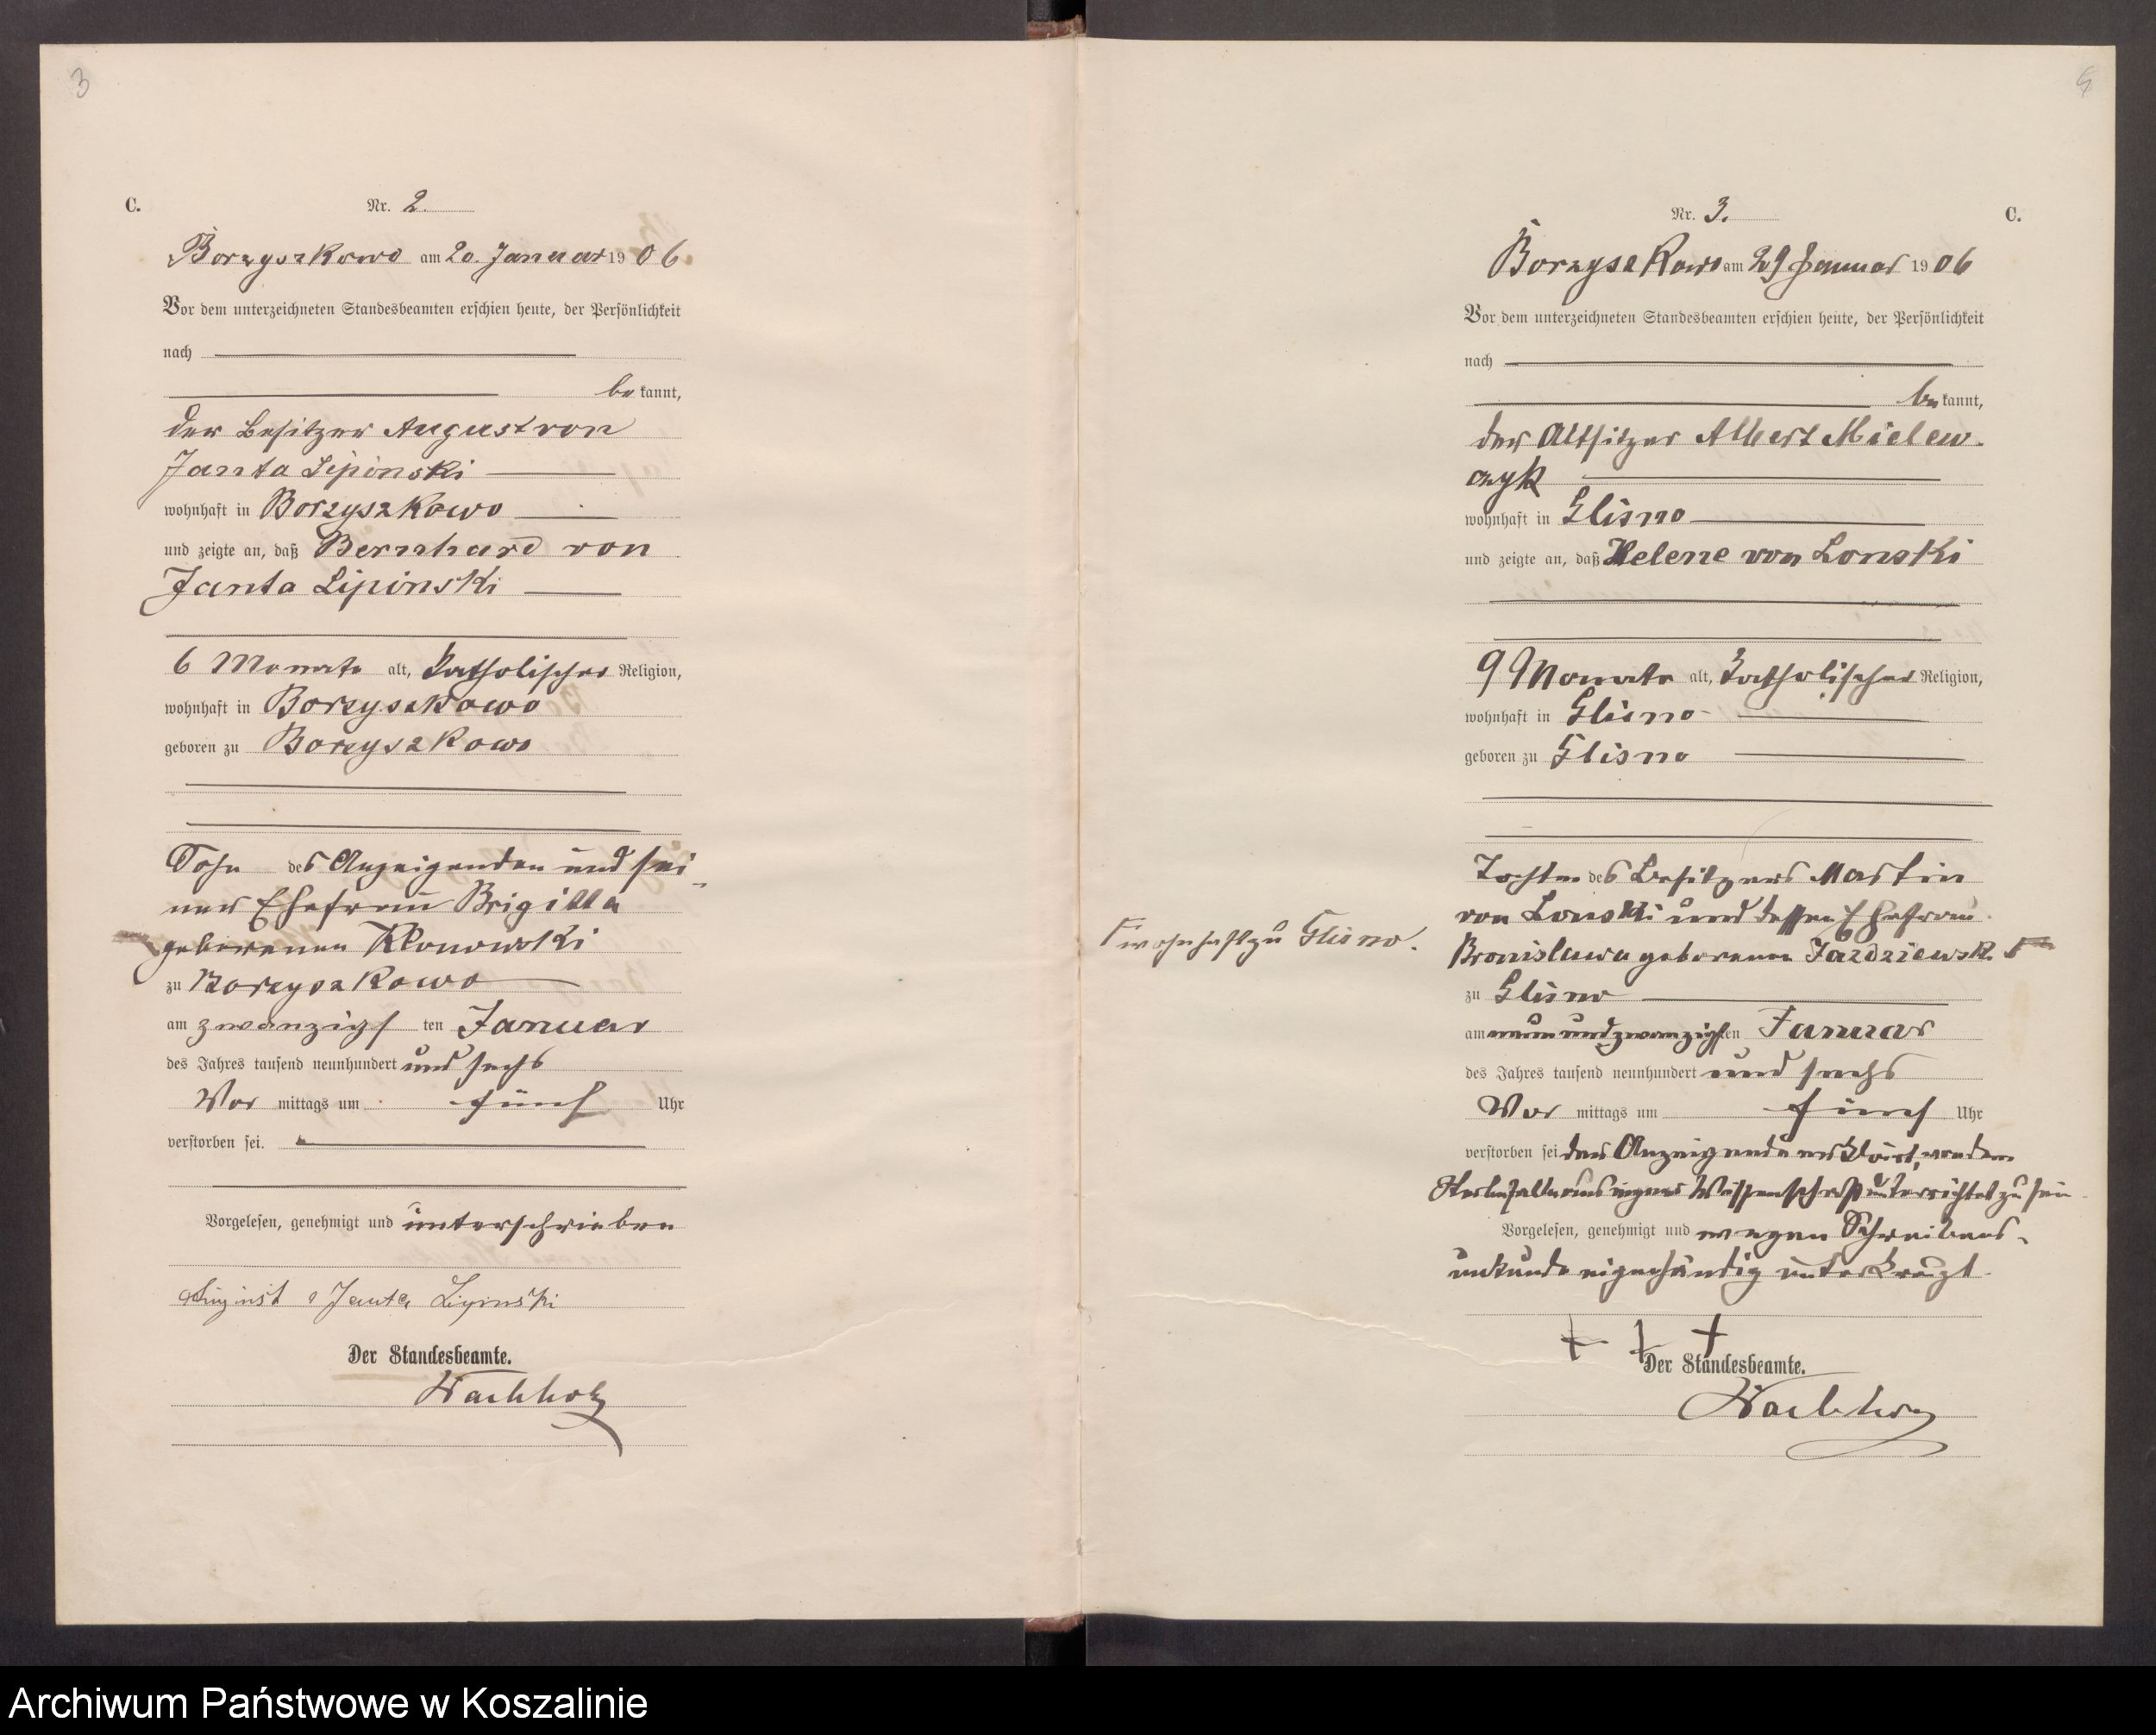 3
C.
Nr. 2.
Borzyszkowo am 20. Januar 1906.
Vor dem unterzeichneten Standesbeamten erschien heute, der Persönlichkeit
nach
bekannt,
der Besitzer August von
Janta Lipinski
wohnhaft in Borzyszkowo
und zeigte an, daß Bernhard von
Janta Lipinski
6 Monate alt, katholischer Religion,
wohnhaft in Borzyszkowo
geboren zu Borzyszkowo
Sohn des Anzeigenden und sei-
ner Ehefrau Brigitta
geborenen Klonowski
zu Borzyszkowo
am zwanzigsten Januar
des Jahres tausend neunhundert und sechs
Vormittags um fünf Uhr
verstorben sei.
Vorgelesen, genehmigt und unterschrieben
August v Janta Lipinski
Der Standesbeamte.
Wachholz
4
Nr. 3.
C.
Borzyszkowo am 29 Januar 1906
Vor dem unterzeichneten Standesbeamten erschien heute, der Persönlichkeit
nach
bekannt,
der Altsitzer Albert Mielew-
czyk
wohnhaft in Glisno
und zeigte an, daß Helene von Lonski
9 Monate alt, katholischer Religion,
wohnhaft in Glisno
geboren zu Glisno
Tochter des Besitzers Martin
von Lonski und dessen Ehefrau
Bronislawa geborenen Jazdziewsk
wohnhaft zu Glisno.
zu Glisno
am neunundzwanzigsten Januar
des Jahres tausend neunhundert und sechs
Vormittags um fünf Uhr
verstorben sei der Anzeigende erklärt, von dem
Sterbefalle aus eigener Wissenschaft unterrichtet zu sein
Vorgelesen, genehmigt und wegen Schreibens-
unkunde eigenhändig unterkreuzt
+ + +
Der Standesbeamte.
Wachholz
Archiwum Państwowe w Koszalinie